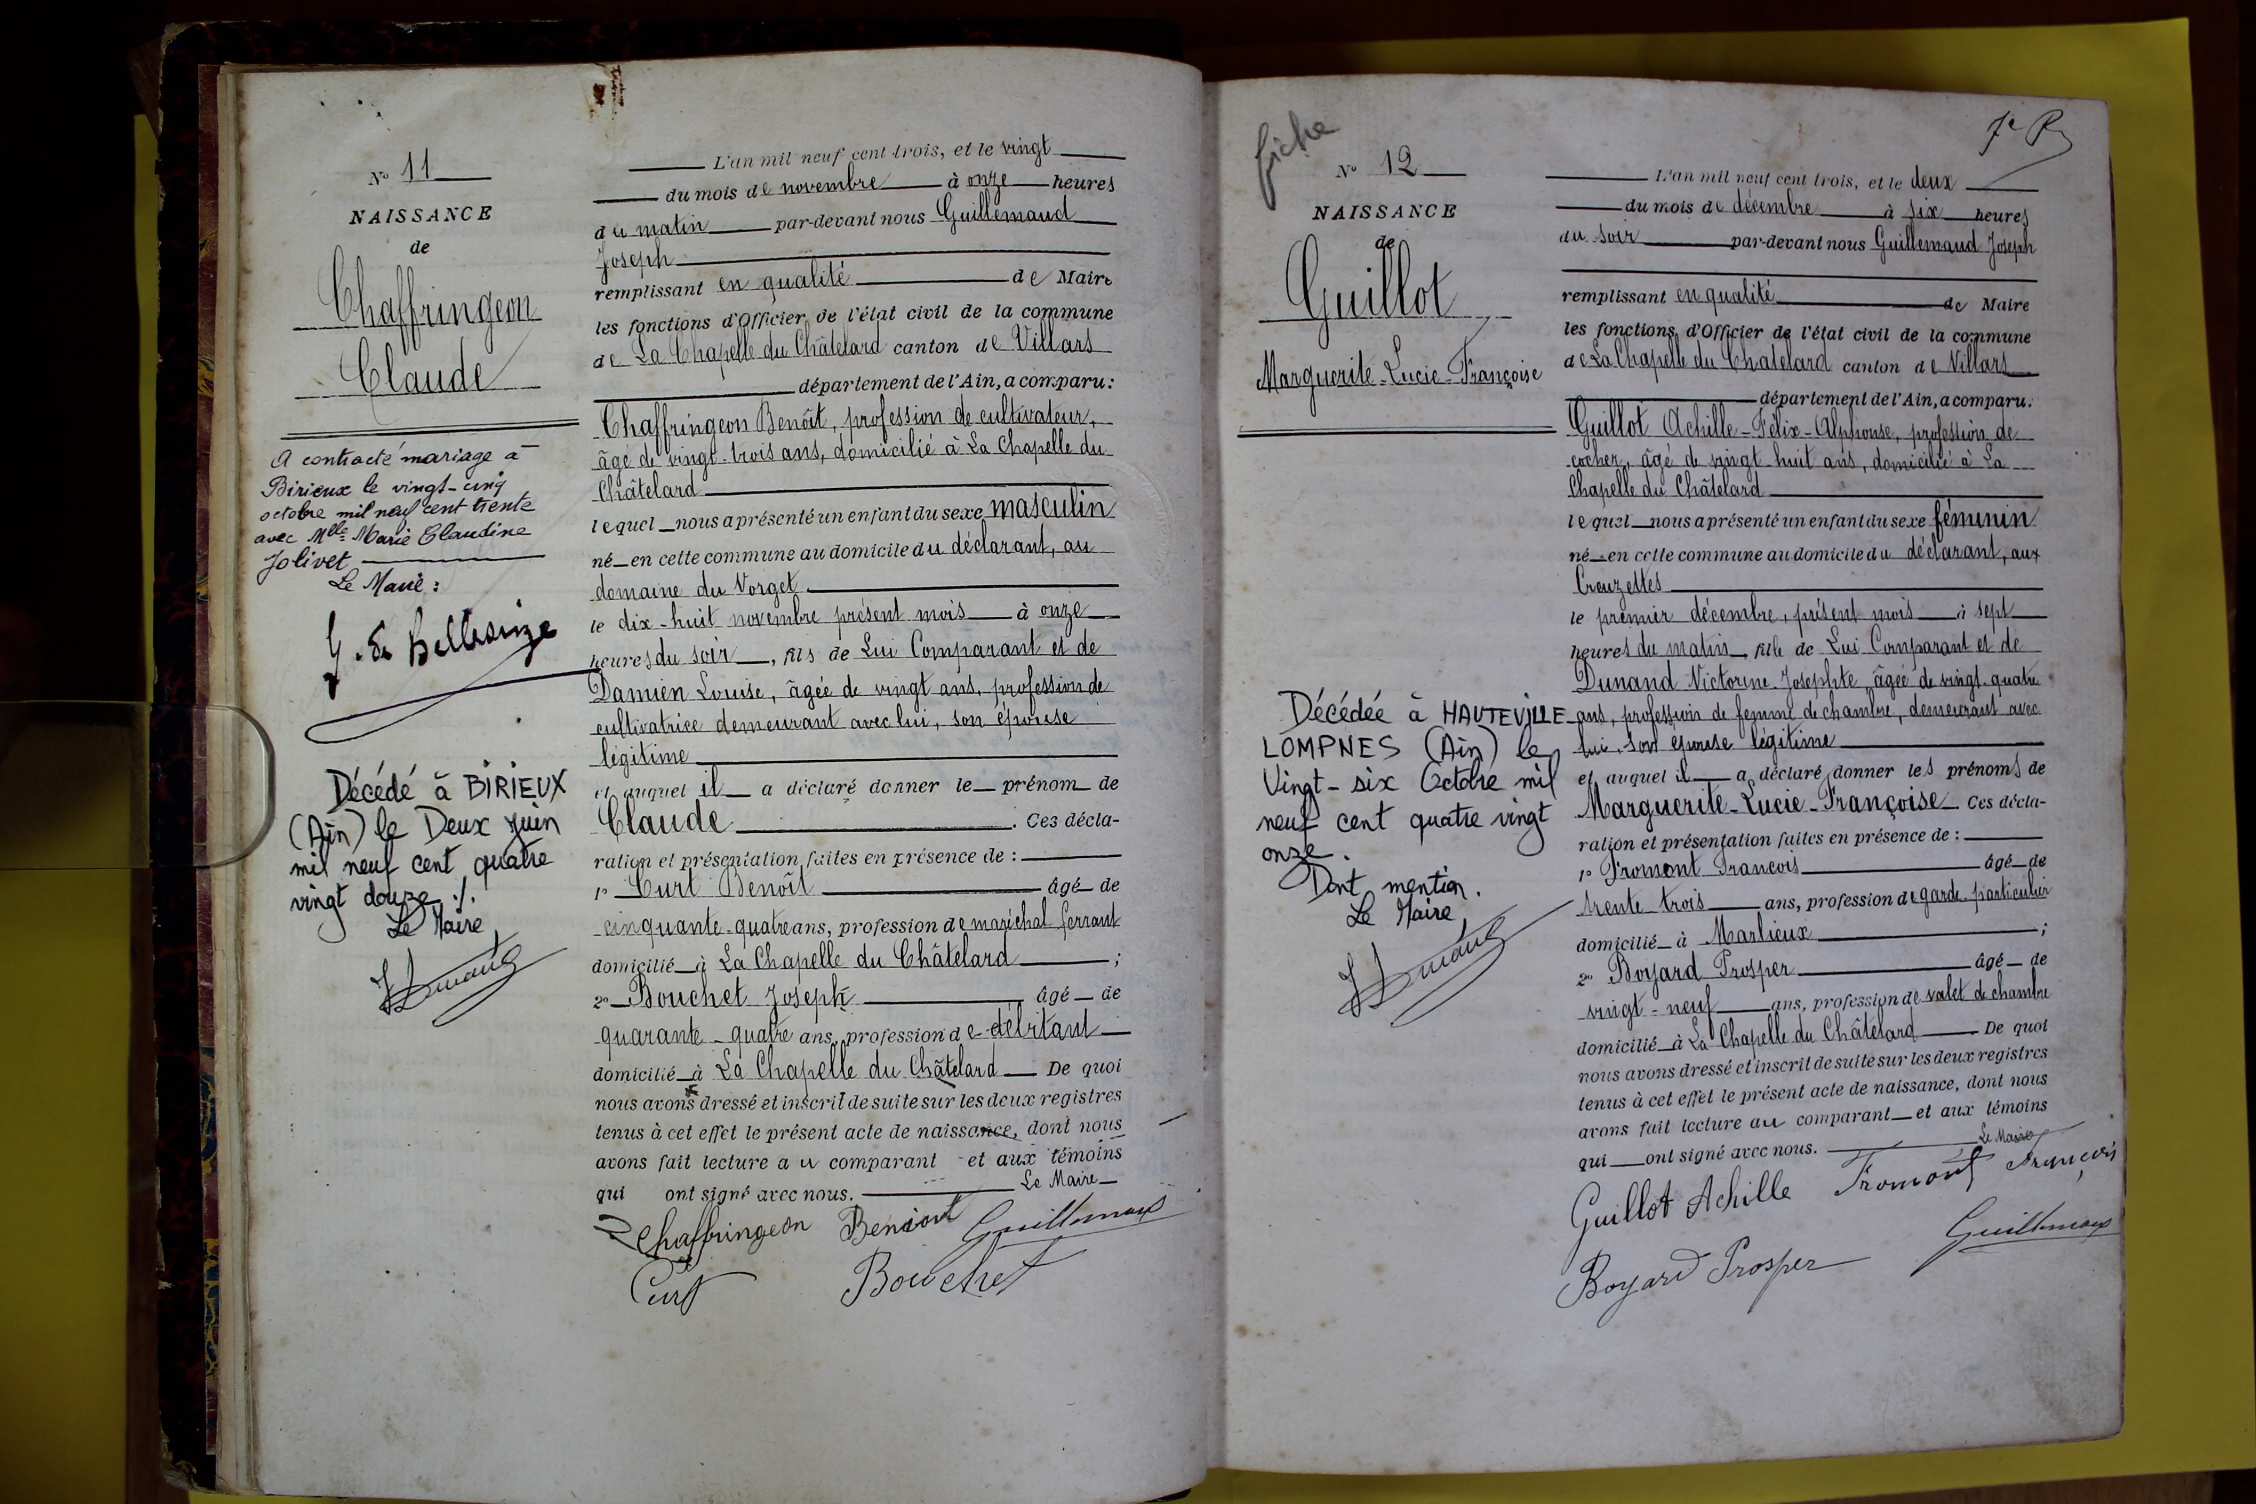 Nº 11
NAISSANCE
de
Chaffringeon
Claude
A contracté mariage à
Birieux le vingt-cinq
octobre mil neuf cent trente
avec Mlle Marie Claudine
Jolivet
Le Maire :
Décédé à BIRIEUX
(Ain) le Deux juin
mil neuf cent quatre
vingt douze ./.
Le Maire,
L'an mil neuf cent trois, et le vingt
du mois de novembre à onze heures
du matin par-devant nous Guillemaud
Joseph
remplissant en qualité de Maire
les fonctions d'Officier de l'état civil de la commune
de La Chapelle du Châtelard canton de Villars
département de l'Ain, a comparu :
Chaffringeon Benoît, profession de cultivateur,
âgé de vingt-trois ans, domicilié à La Chapelle du
Châtelard
lequel nous a présenté un enfant du sexe masculin
né en cette commune au domicile du déclarant, au
domaine du Vorget
le dix-huit novembre présent mois à onze
heures du soir, fils de Lui Comparant et de
Damien Louise, âgée de vingt ans, profession de
cultivatrice demeurant avec lui, son épouse
légitime
et auquel il a déclaré donner le prénom de
Claude. Ces décla-
ration et présentation faites en présence de :
1º Curt Benoît âgé de
cinquante-quatre ans, profession de maréchal ferrant
domicilié à La Chapelle du Châtelard ;
2º Bouchet Joseph âgé de
quarante-quatre ans, profession de débitant
domicilié à La Chapelle du Châtelard De quoi
nous avons dressé et inscrit de suite sur les deux registres
tenus à cet effet le présent acte de naissance, dont nous
avons fait lecture au comparant et aux témoins
qui ont signé avec nous. Le Maire
Chaffringeon Benoit Guillemaud
Curt Bouchet
fiche
Nº 12
NAISSANCE
de
Guillot
Marguerite-Lucie-Françoise
Décédée à HAUTEVILLE
LOMPNES (Ain) le
Vingt-six Octobre mil
neuf cent quatre vingt
onze.
Dont mention.
Le Maire,
7e
L'an mil neuf cent trois, et le deux
du mois de décembre à six heures
du soir par-devant nous Guillemaud Joseph
remplissant en qualité de Maire
les fonctions d'Officier de l'état civil de la commune
de La Chapelle du Châtelard canton de Villars
département de l'Ain, a comparu :
Guillot Achille-Félix-Alphonse, profession de
cocher, âgé de vingt-huit ans, domicilié à La
Chapelle du Châtelard
lequel nous a présenté un enfant du sexe féminin
né en cette commune au domicile du déclarant, aux
Creuzettes
le premier décembre, présent mois à sept
heures du matin, fille de Lui Comparant et de
Dunand Victorine-Josephte âgée de vingt-quatre
ans, profession de femme de chambre, demeurant avec
lui, son épouse légitime
et auquel il a déclaré donner les prénoms de
Marguerite-Lucie-Françoise Ces décla-
ration et présentation faites en présence de :
1º Fromont François âgé de
trente-trois ans, profession de garde particulier
domicilié à Marlieux ;
2º Boyard Prosper âgé de
vingt-neuf ans, profession de valet de chambre
domicilié à La Chapelle du Châtelard De quoi
nous avons dressé et inscrit de suite sur les deux registres
tenus à cet effet le présent acte de naissance, dont nous
avons fait lecture au comparant et aux témoins
qui ont signé avec nous. Le Maire
Guillot Achille Fromont François
Boyard Prosper Guillemaud